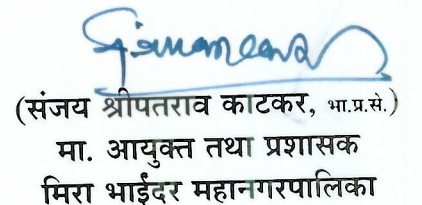 (संजय श्रीपतराव काटकर, भा.प्र.से.)
मा. आयुक्त तथा प्रशासक
मिरा भाईंदर महानगरपालिका